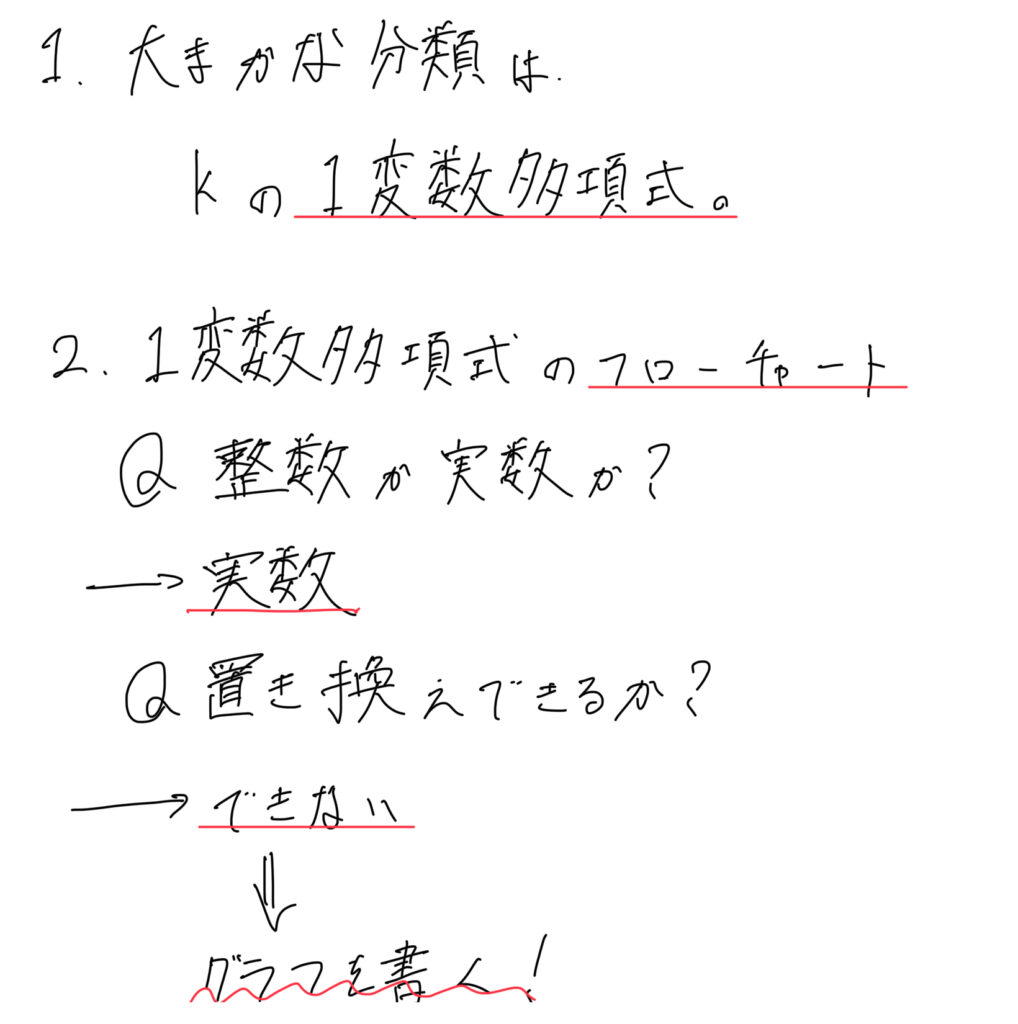 1. 大まかな分類は.
kの1変数多項式。
2. 1変数多項式のフローチャート
Q 整数か実数か?
→ 実数
Q 置き換えできるか?
→ できない
⇓
グラフを書く!